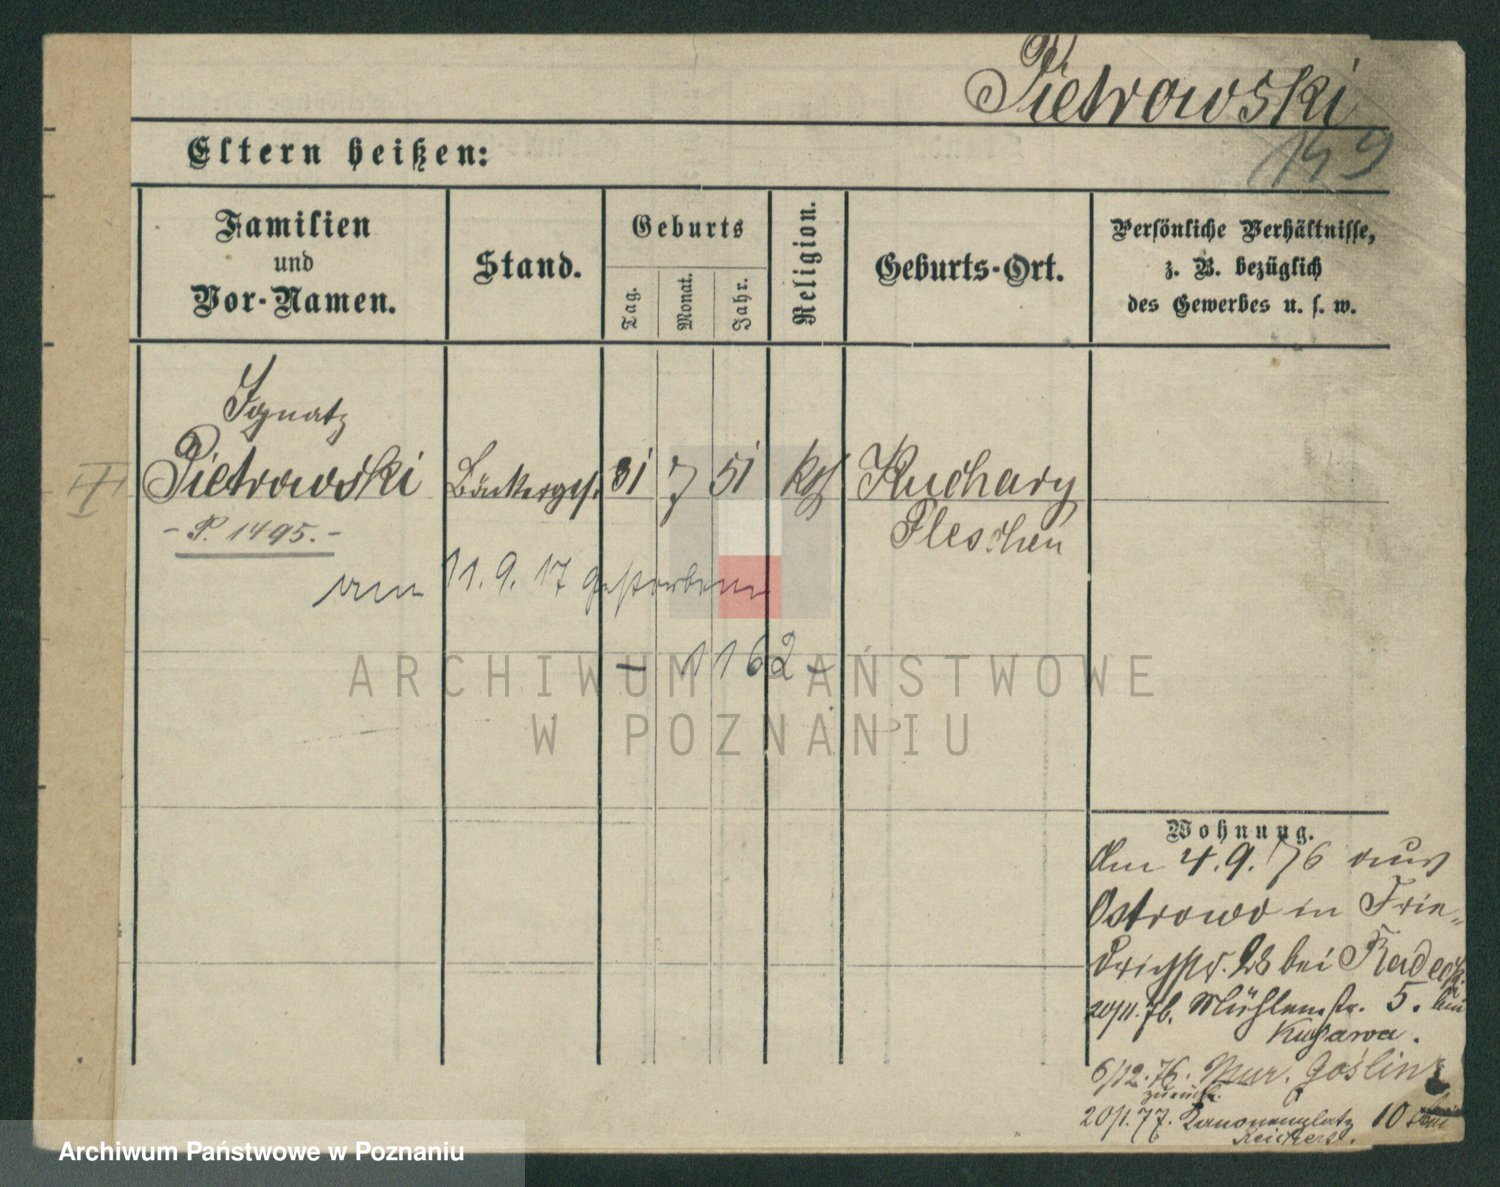 Pietrowski
149
Eltern heißen:
Familien
und
Vor-Namen.
Stand.
Geburts
Tag.
Monat.
Jahr.
Religion.
Geburts-Ort.
Persönliche Verhältnisse,
z. B. bezüglich
des Gewerbes u. s. w.
Ignatz
Pietrowski
31 7 51 kth
Kuchary
Pleschen
- P. 1495. -
am 11. 9. 17 gestorben
- 1162 -
ARCHIWUM PAŃSTWOWE
W POZNANIU
Wohnung.
Am 4. 9. 76 aus
Ostrowo in Frie-
drichstr. 28 bei
20/11. 76. Mühlenstr. 5. bei
Kujawa.
6/12. 76. Mur. Goslin
zurück.
20/1. 77. Kanonenplatz 10 bei
Archiwum Państwowe w Poznaniu